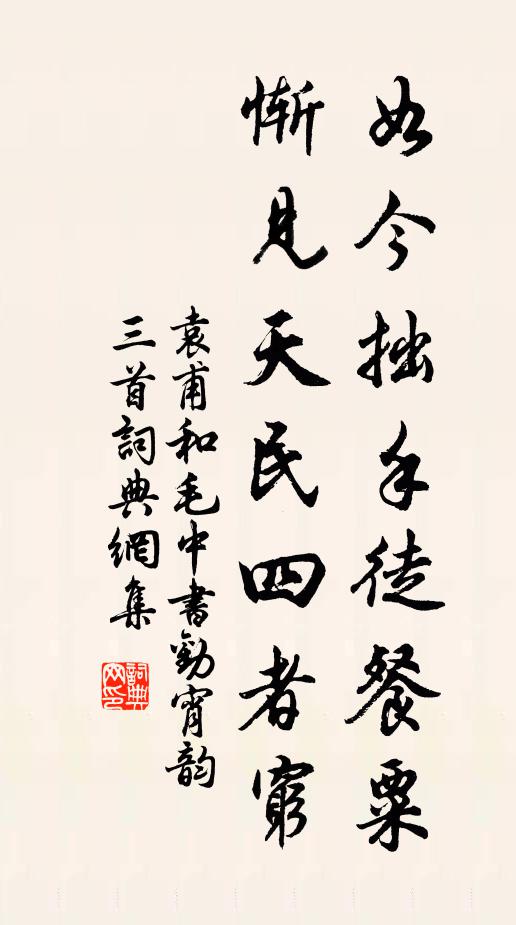 如今拙手徒餐粟
慚見天民四者窮
袁甫和毛中書勸宵韵
三首詞典網集
詞典
网印